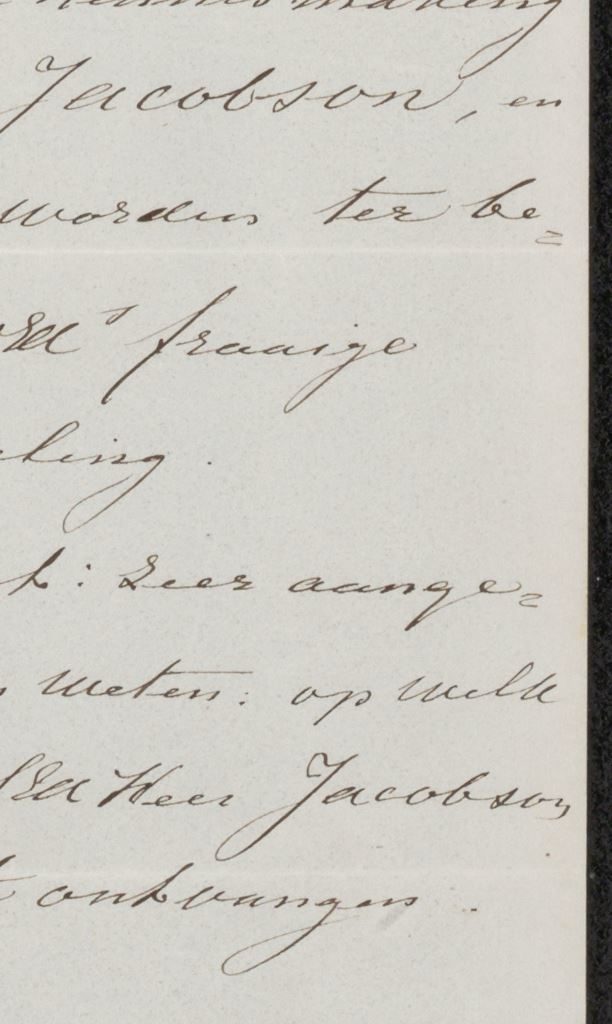 kennismaking
Jacobson, en
worden ter be=
Ed^s fraaije
ling.
t: Zeer aange=
weten: op welk
Ed Heer Jacobson
t ontvangen.